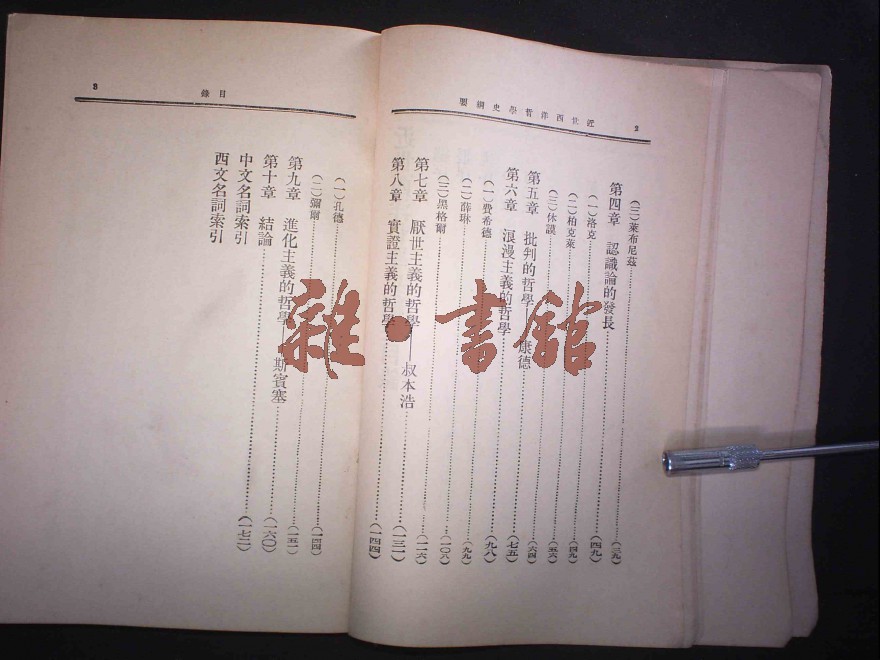 近世西洋哲學史綱要
2
(三)萊布尼茲……(三九)
第四章 認識論的發長……(四九)
(一)洛克……(四九)
(二)柏克萊……(五六)
(三)休謨……(六四)
第五章 批判的哲學——康德……(七五)
第六章 浪漫主義的哲學……(九八)
(一)費希德……(九九)
(二)薛琳……(一〇八)
(三)黑格爾……(一一六)
第七章 厭世主義的哲學——叔本浩……(一三一)
第八章 實證主義的哲學……(一四四)
目錄
3
(一)孔德……(一四四)
(二)彌爾……(一五一)
第九章 進化主義的哲學——斯賓塞……(一六〇)
第十章 結論……(一七二)
中文名詞索引
西文名詞索引
雜·書館